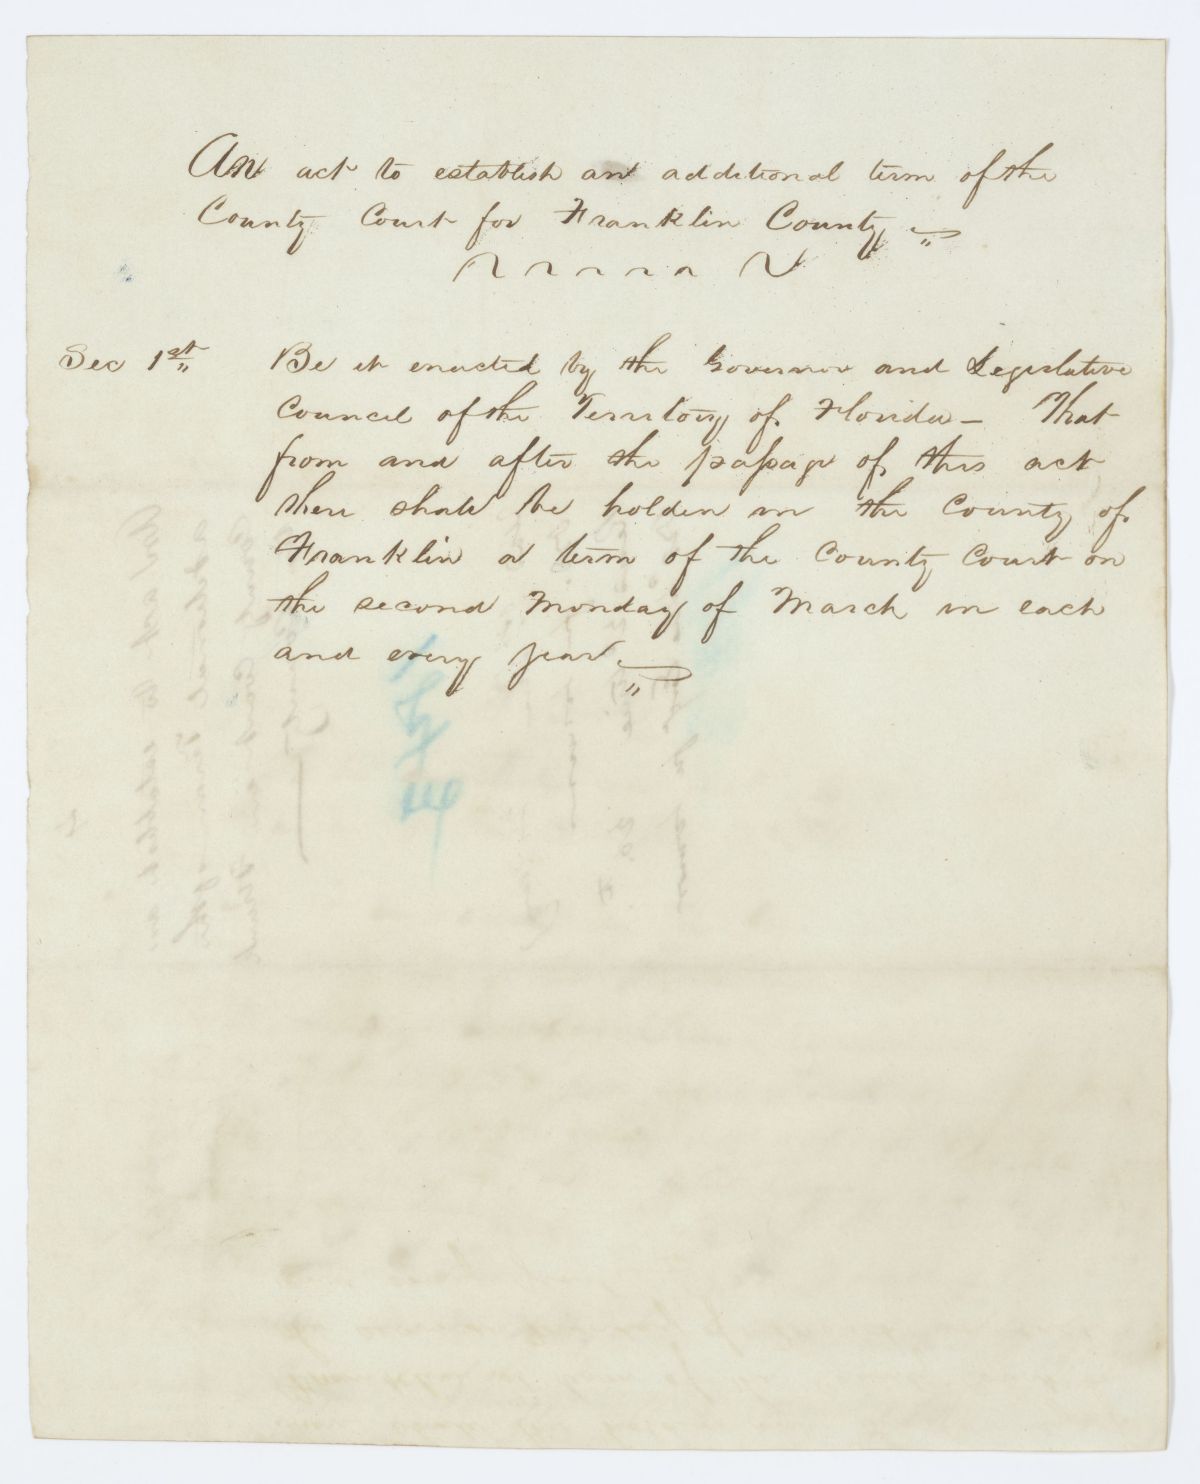 An act to establish an additional term of the
County Court for Franklin County
Sec 1st Be it enacted by the Governor and Legislative
Council of the Territory of Florida – That
from and after the passage of this act
there shall be holden in the County of
Franklin a term of the County Court on
the second Monday of March in each
and every year.